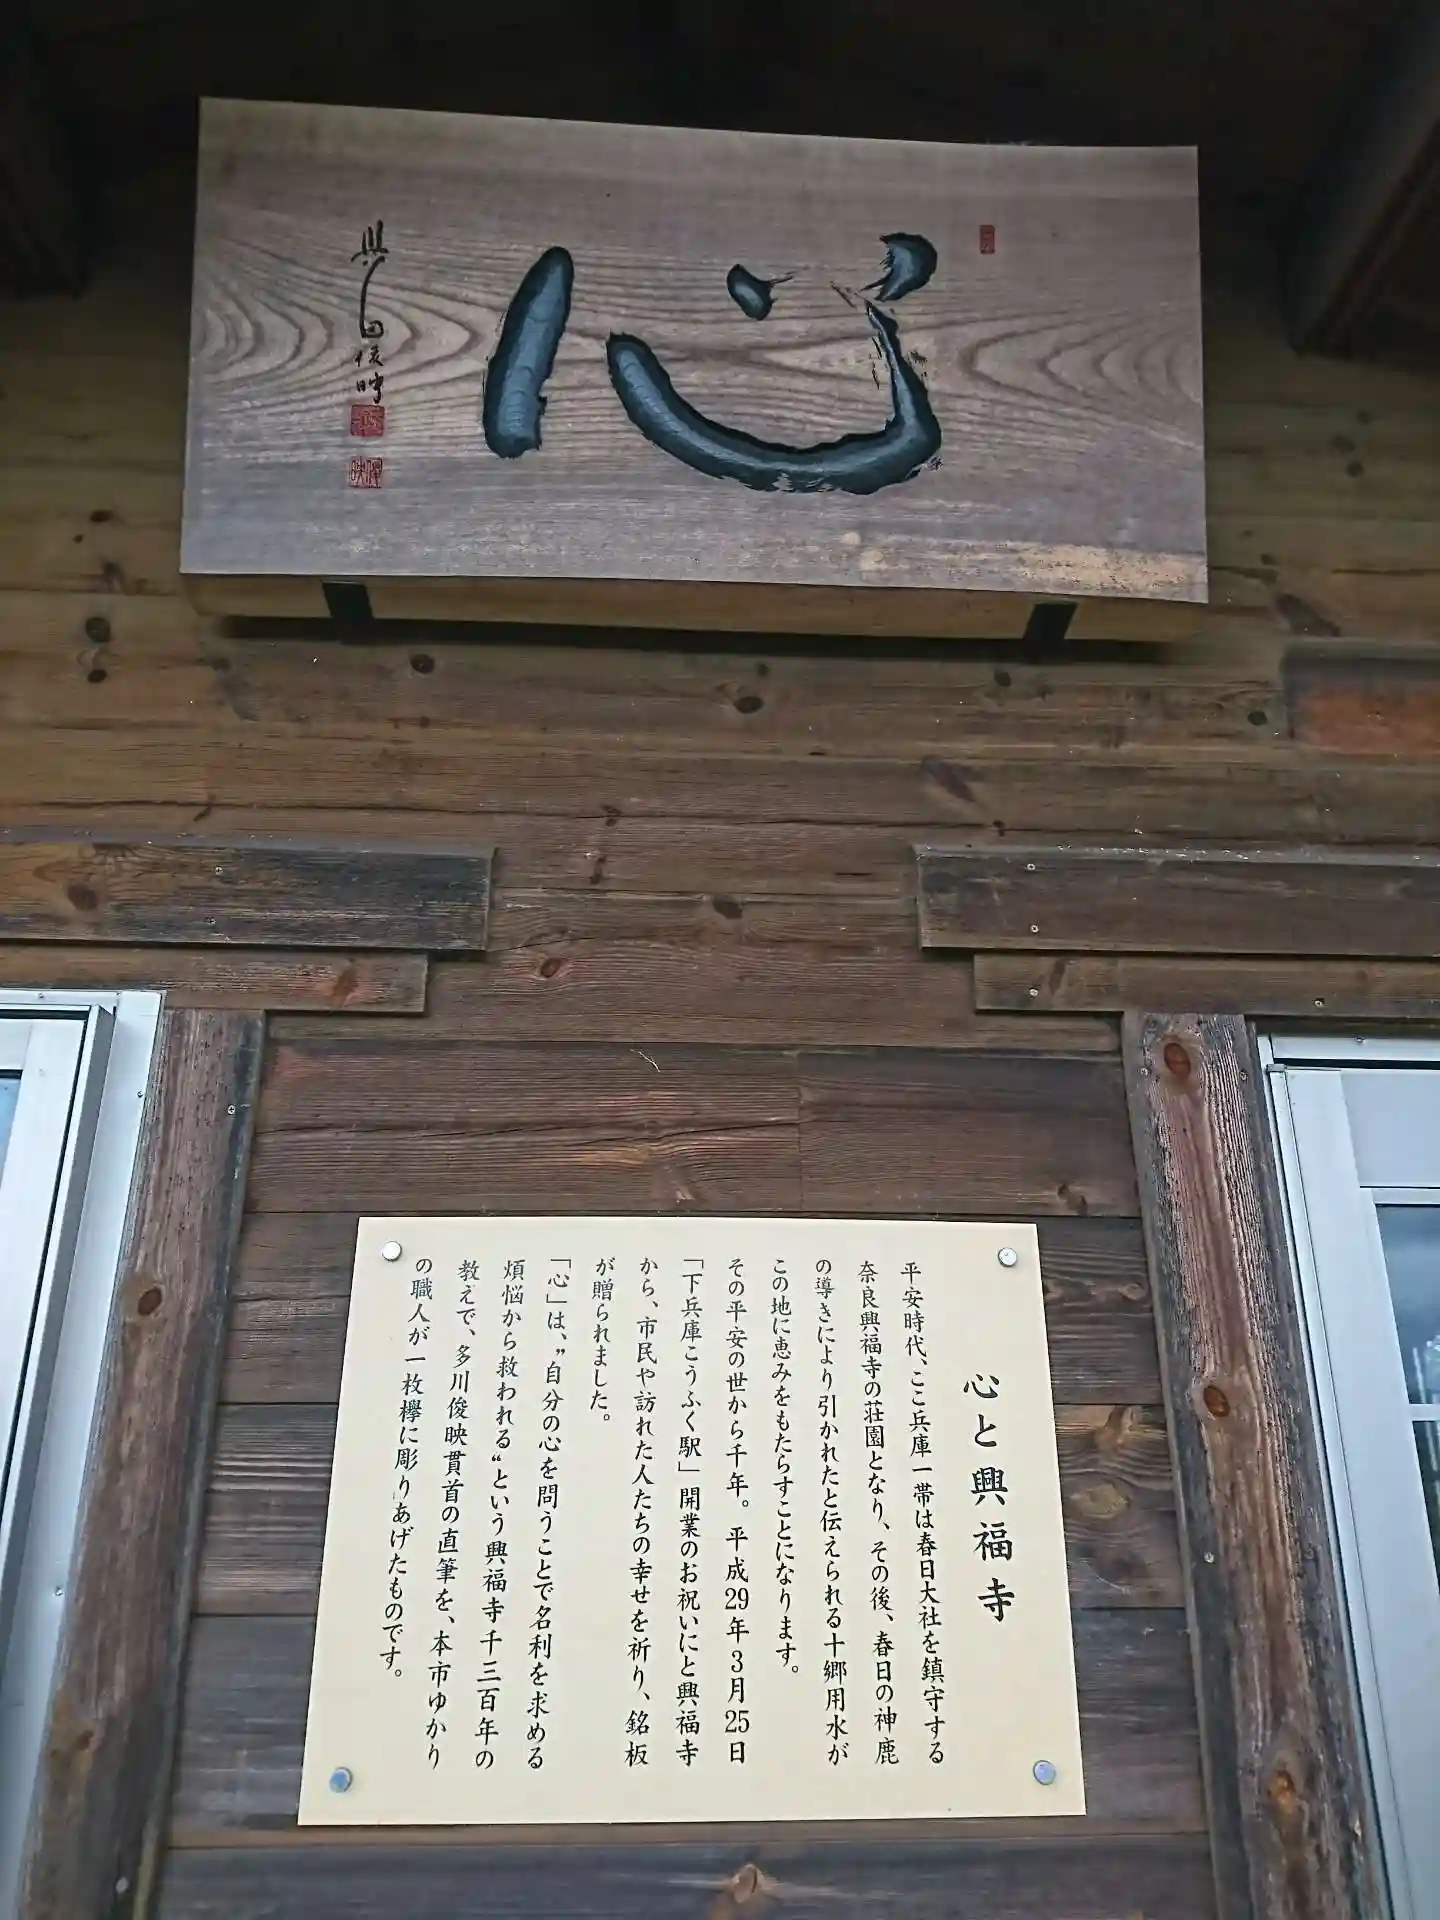 心
俊映
心と興福寺
平安時代、ここ兵庫一帯は春日大社を鎮守する
奈良興福寺の荘園となり、その後、春日の神鹿
の導きにより引かれたと伝えられる十郷用水が
この地に恵みをもたらすことになります。
その平安の世から千年。平成29年3月25日
「下兵庫こうふく駅」開業のお祝いにと興福寺
から、市民や訪れた人たちの幸せを祈り、銘板
が贈られました。
「心」は、〝自分の心を問うことで名利を求める
煩悩から救われる〟という興福寺千三百年の
教えで、多川俊映貫首の直筆を、本市ゆかり
の職人が一枚欅に彫りあげたものです。